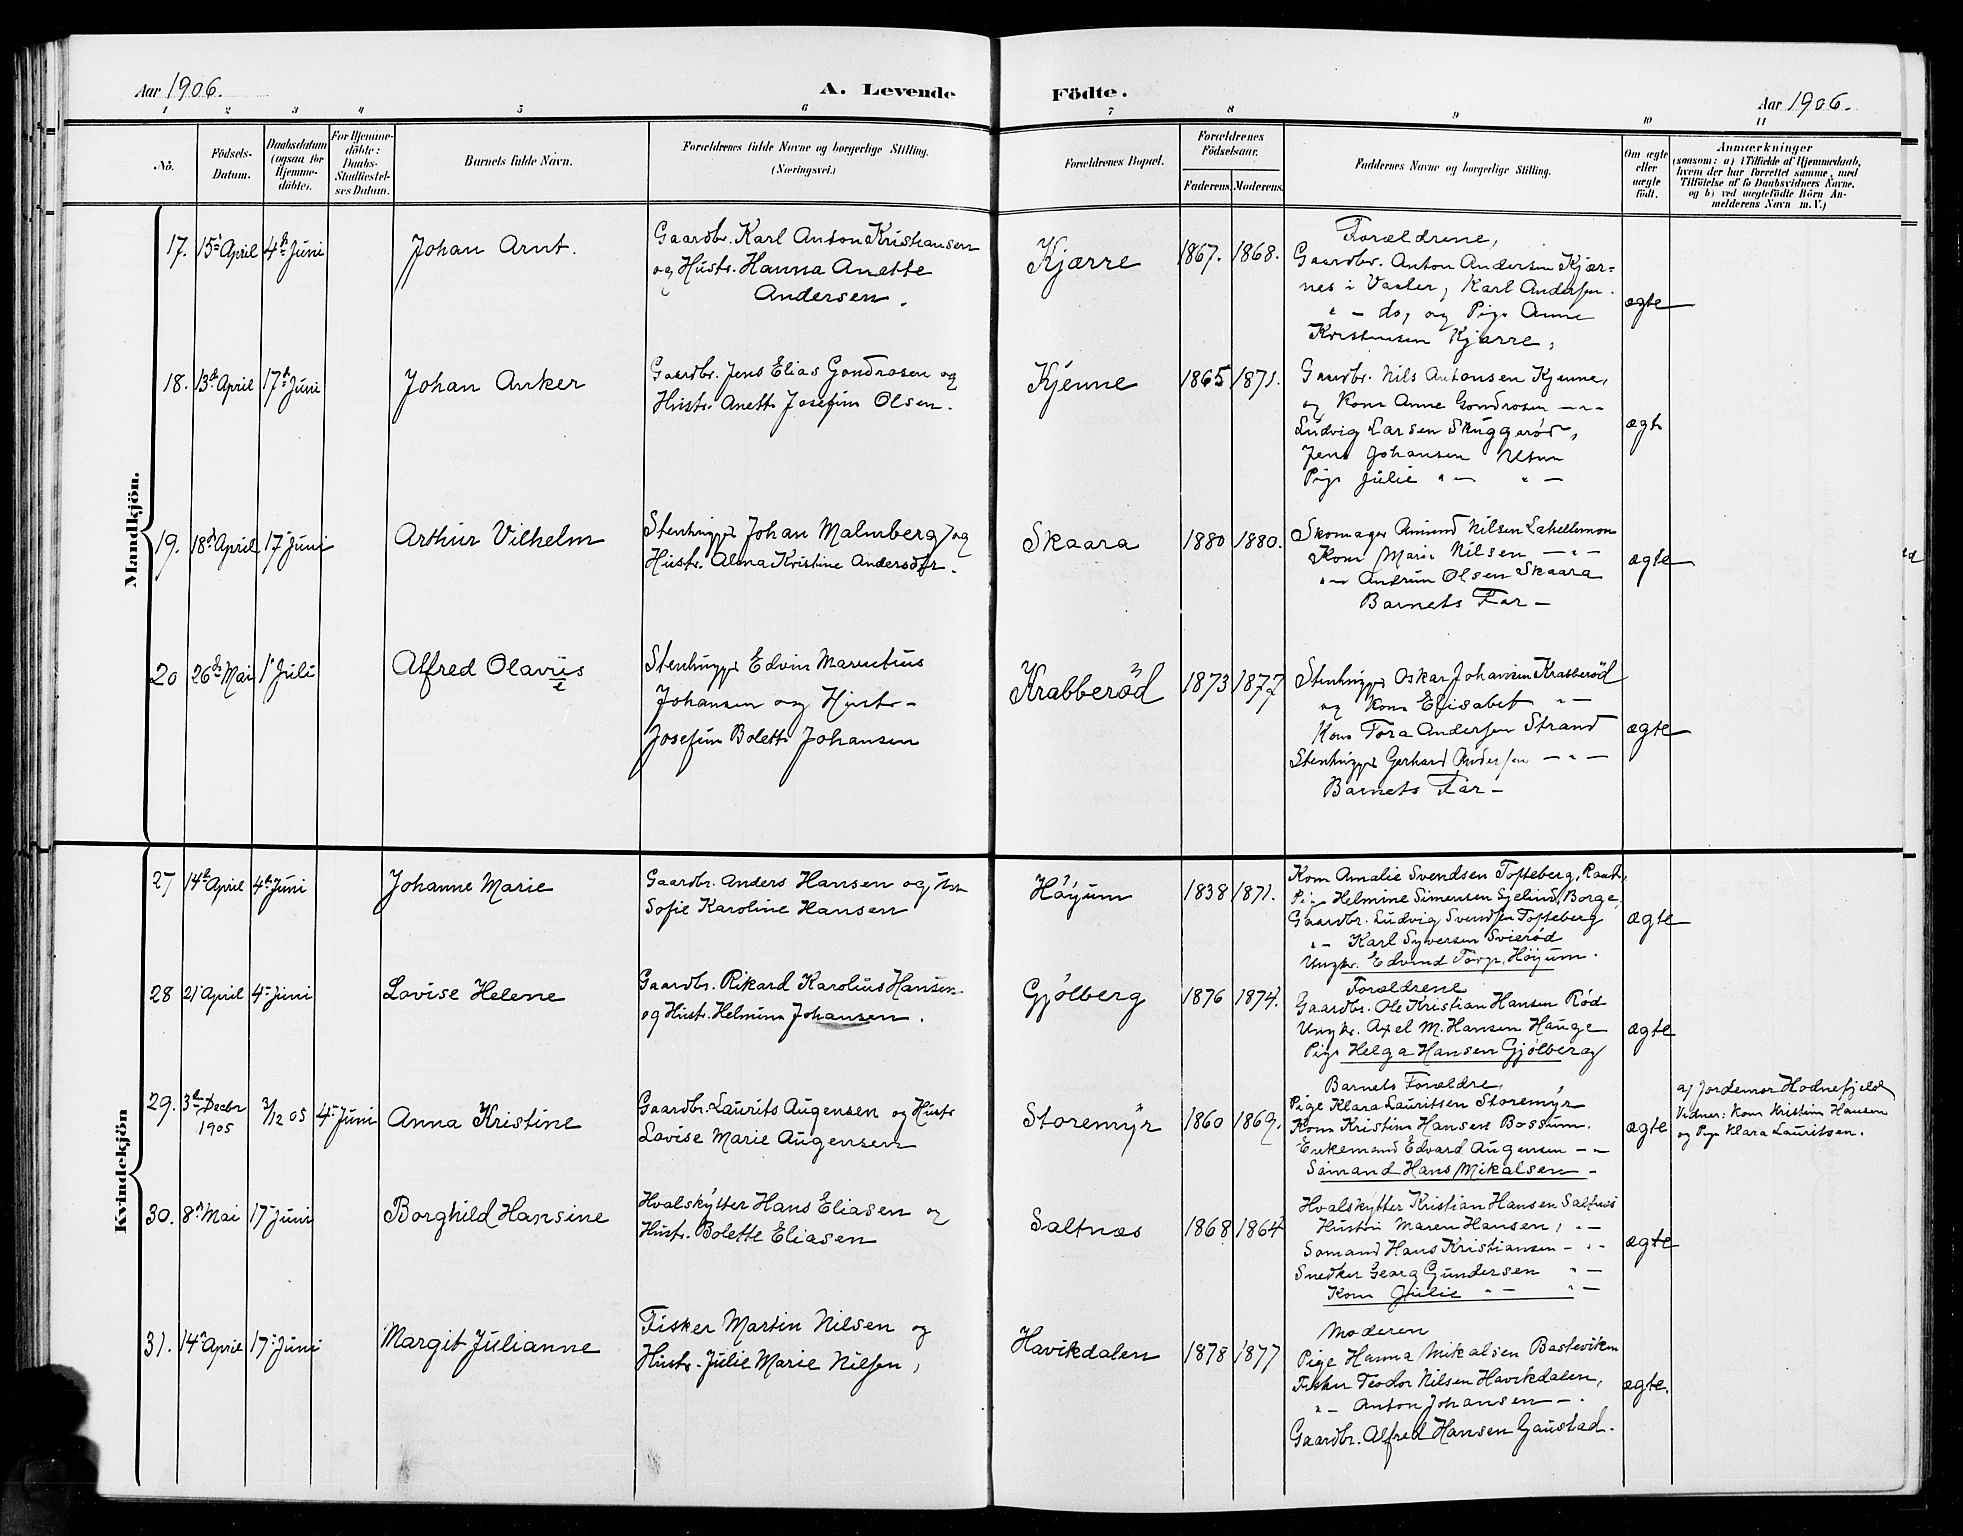 Aar 1906.
A. Levende
Födte.
Aar 1906.
1 2 3 4 5 6 7 8 9 10 11
No.
Födsels-
Datum.
Daabsdatum
(ogsaa for
Hjemme-
döbte).
For Hjemme-
döbte:
Daabs-
Stadfæstel-
ses Datum.
Barnets fulde Navn.
Forældrenes fulde Navne og borgerlige Stilling.
(Næringsvei.)
Forældrenes Bopæl.
Forældrenes
Födselsaar.
Faderens. Moderens.
Faddernes Navne og borgerlige Stilling.
Om ægte
eller
uægte
födt.
Anmærkninger
(saasom: a) i Tilfælde af Hjemmedaab,
hvem der har forrettet samme, med
Tilföielse af to Daabsvidners Navne.
og b) ved uægtefödte Börn An-
melderens Navn m. V.)
Mandkjön.
17. 15de April 4de Juni
Johan Arnt.
Gaardbr. Karl Anton Kristiansen
og Hustr. Hanna Anette
Andersen.
Kjærre
1867. 1868.
Forældrene,
Gaardbr. Anton Andersen Kjær-
nes i Vaaler, Karl Andersen
" — do, og Pige Anne
Kristensen Kjærre,
ægte
18. 13de April 17de Juni
Johan Anker
Gaardbr. Jens Elias Gondrosen og
Hustr. Anette Josefine Olsen.
Kjenne
1865 1871.
Gaardbr. Nils Antonsen Kjenne,
og Kone Anne Gondrosen — " —
Ludvig Larsen Skuggerød,
Jens Johansen
Pige Julie " — " —
ægte
19. 18de April 17 Juni
Arthur Vilhelm
Stenhugger Johan Malmberg og
Hustr. Alma Kristine Andersdtr.
Skaara
1880 1880.
Skomager Amund Nilsen Lahellemon
Kone Marie Nilsen — " —
" — Andrine Olsen Skaara
Barnets Far —
ægte
20 26de Mai 1 Juli
Alfred Olavus
Stenhugger Edvin Marentius
Johansen og Hustr. —
Josefine Bolette Johansen
Krabberød
1873 1877
Stenhugger Oskar Johansen Krabberød
og Kone Elisabet " —
Kone Tora Andersen Strand
Stenhugger Gerhard Andersen — " —
Barnets Far —
ægte
Kvindekjön
27 14de April 4de Juni
Johanne Marie
Gaardbr. Anders Hansen og Hstr
Sofie Karoline Hansen
Høyum
1838 1871.
Kone Amalie Svendsen Tofteberg, Raade,
Pige Helmine Simensen Gjelind, Borge,
Gaardbr. Ludvig Svendsen Tofteberg
" — Karl Syversen Svierød
Ungkr. Edvind Torp, Høyum.
ægte
28 21 April 4 Juni
Lovise Helene
Gaardbr. Rikard Karolius Hansen
og Hustr. Helmina Johansen.
Gjølberg
1876 1874.
Forældrene
Gaardbr. Ole Kristian Hansen Rød
Ungkr. Axel M. Hansen Hauge
Pige Helga Hansen Gjølberg
ægte
29. 3de Decbr
1905
3/12 05 4 Juni
Anna Kristine
Gaardbr. Laurits Augensen og Hustr
Lovise Marie Augensen
Storemyr
1860 1869.
Barnets Forældre,
Pige Klara Lauritsen Storemyr
Kone Kristine Hansen Bossum.
Enkemand Edvard Augensen — " —
Sømand Hans Mikalsen —
ægte
a) Jordemor Hodnefjeld
Vidner: Kone Kristine Hansen
og Pige Klara Lauritsen.
30. 8de Mai 17 Juni
Borghild Hansine
Hvalskytter Hans Eliasen og
Hustr. Bolette Eliasen
Saltnæs
1868 1864
Hvalskytter Kristian Hansen Saltnæs
Hustru Maren Hansen, " —
Sømand Hans Kristiansen — " —
Snedker Georg Gundersen " —
Kone Julie " — " —
ægte
31. 14de April 17 Juni
Margit Julianne
Fisker Martin Nilsen og
Hustr. Julie Marie Nilsen,
Havikdalen
1878 1877
Moderen
Pige Hanna Mikalsen Basteviken
Fisker Teodor Nilsen Havikdalen,
" — Anton Johansen — " —
Gaardbr. Alfred Hansen Gaustad.
ægte.